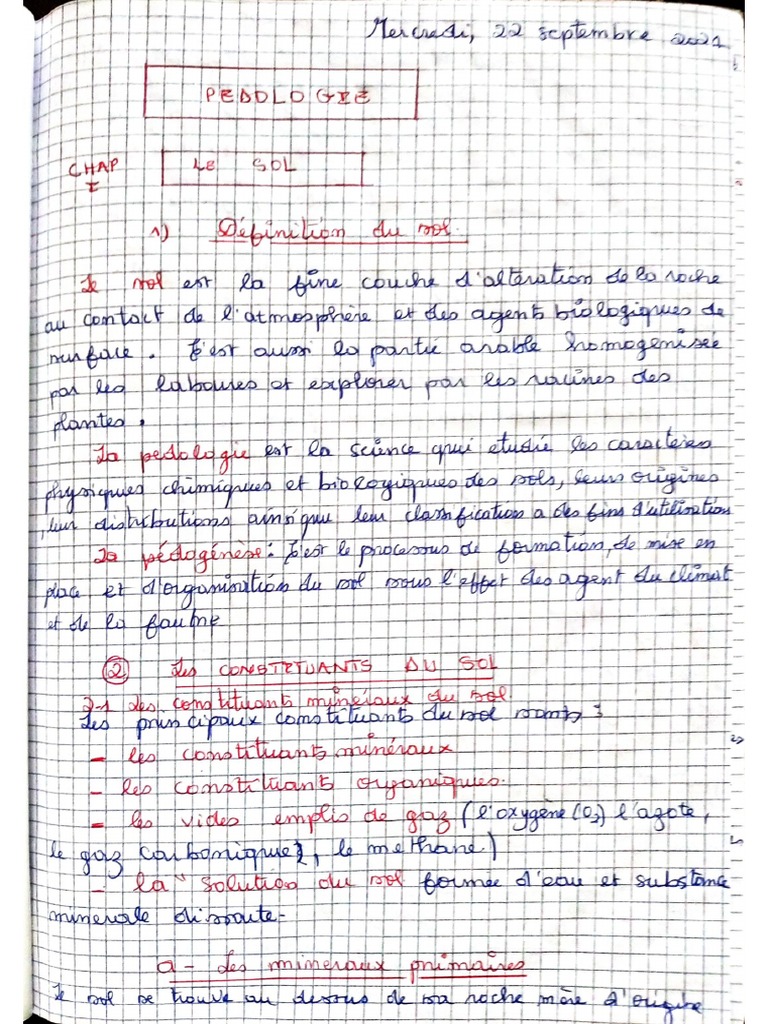 Mercredi, 22 septembre 2021
PEDOLOGIE
CHAP I
LE SOL
1) Définition du sol.
Le sol est la fine couche d'altération de la roche
au contact de l'atmosphère et des agents biologiques de
surface. C'est aussi la partie arable homogénisée
par les laboures et explorer par les racines des
plantes.
La pedologie est la science qui etudie les caracteres
physiques chimiques et biologiques des sols, leurs origines
, leur distributions ainsi que leur classification a des fins d'utilisation
La pédogénèse : C'est le processus de formation, de mise en
place et d'organisation du sol sous l'effet des agent du climat
et de la faune
② Les CONSTITUANTS DU SOL
2-1 des constituants minéraux du sol
Les principaux constituants du sol sont :
- les constituants minéraux
- les constituants organiques.
- les vides emplis de gaz (l'oxygène (O2) l'azote,
le gaz carbonique, le methane)
- la "solution du sol formée d'eau et substance
minerale dissoute-
a - des mineraux primaires
Le sol se trouve au dessus de sa roche mère d'origine